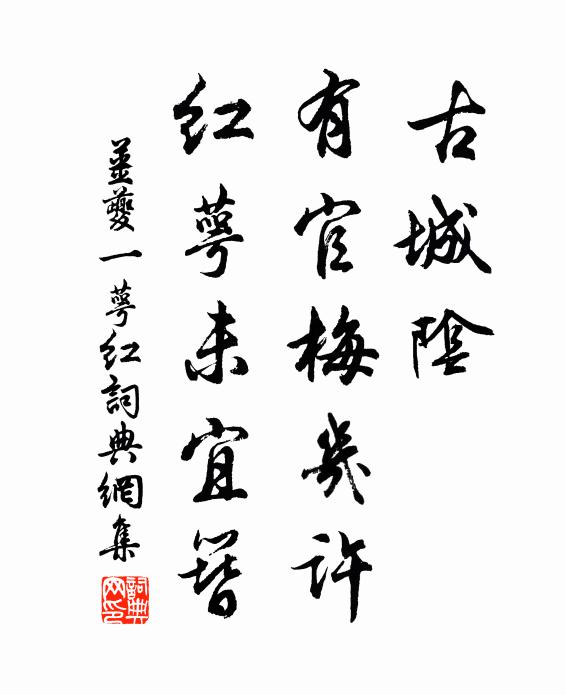 古城陰
有官梅幾許
紅萼未宜簪
姜夔一萼紅詞典網集
詞典網印